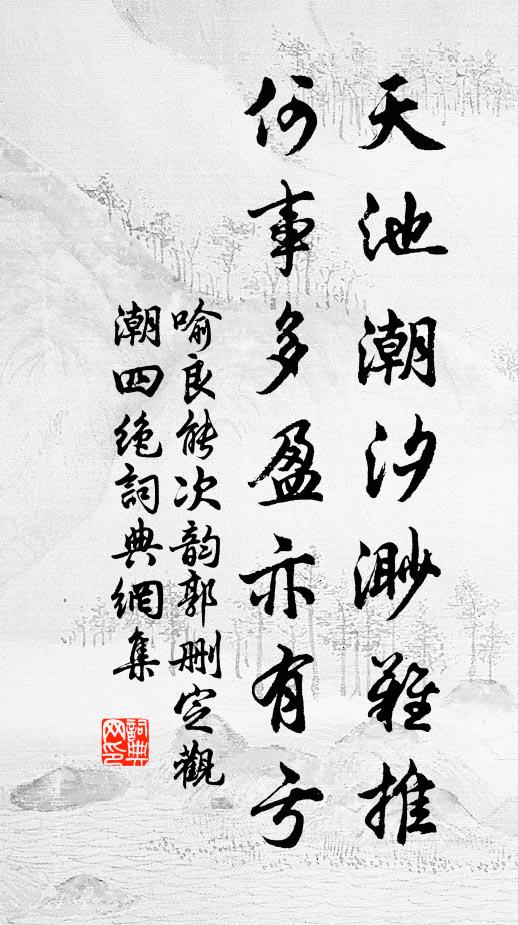 天池潮汐渺難推
何事多盈亦有亏
喻良能次韵郭删定觀
潮四绝詞典網集
詞典网印